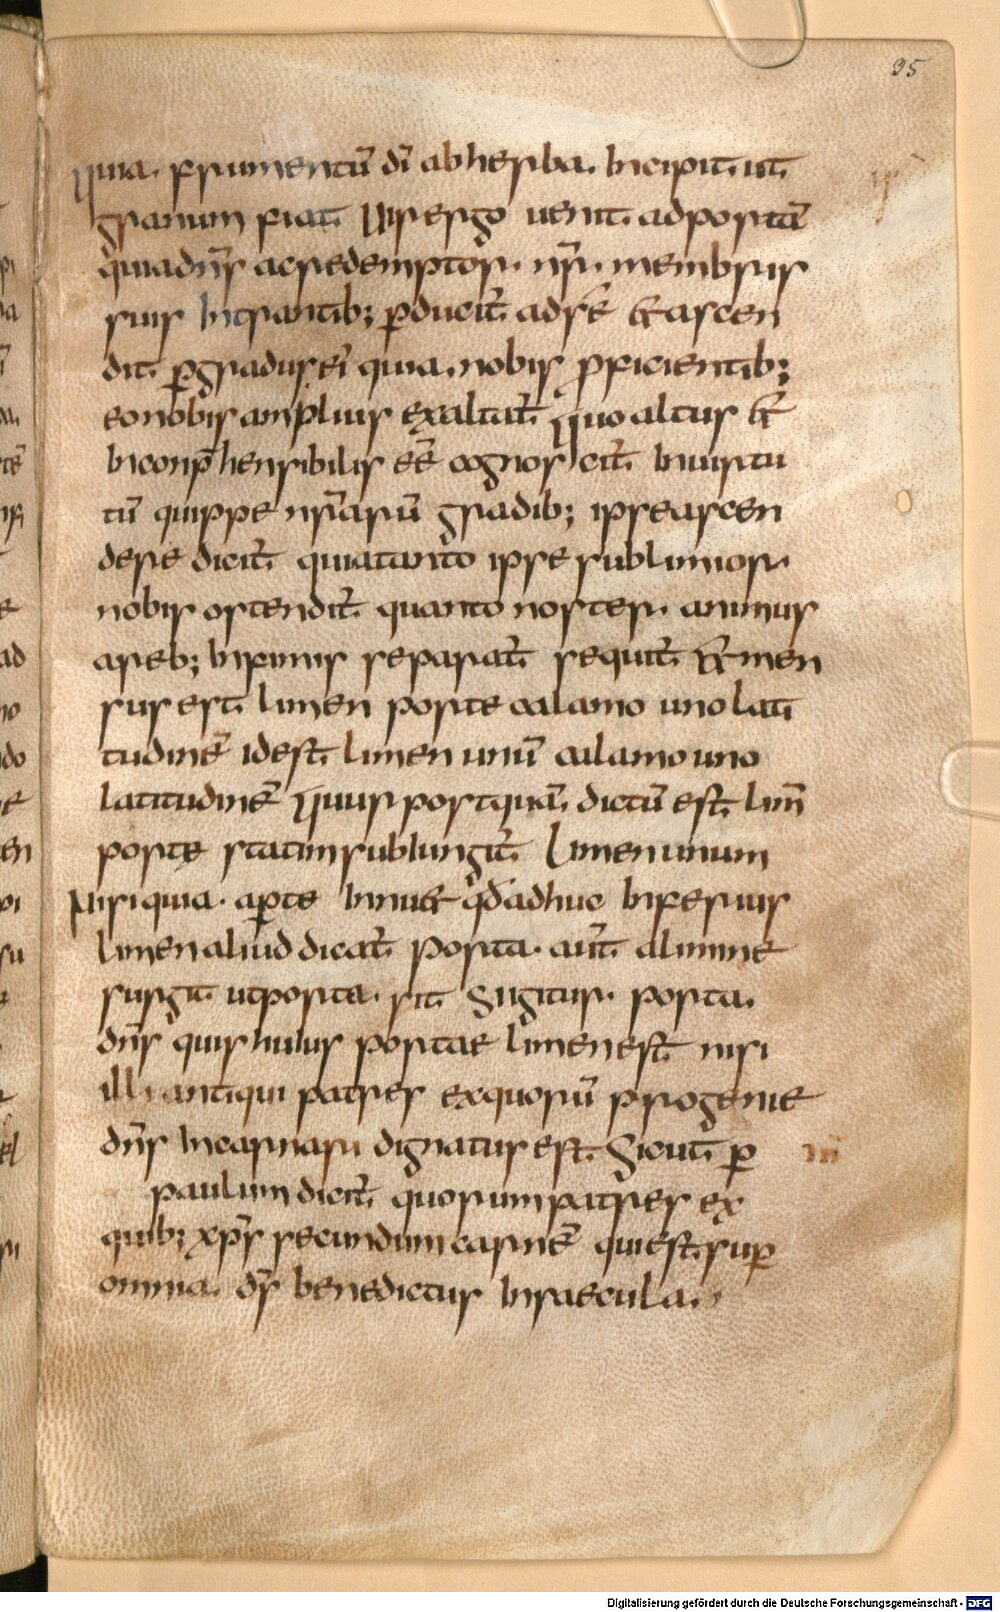 35
Quia frumentū dī ab herba incipit ut
granum fiat Vir ergo uenit ad portā
quia dn̄s ac redemptor nr̄ membris
suis intrantib; ꝑducit̄ ad sē & ascen
dit ꝑ gradus eī quia nobis ꝓficientib;
eo nobis amplius exaltat̄ Quo altus &
inconp̄hensibilis eē cognoscit̄ In uirtu
tū quippe nr̄arū gradib; ipse ascen
dere dicit̄ quia tanto ipse sublimior
nobis ostendit̄ quanto noster animus
a reb; infimis separat̄ sequit̄ & men
sus est limen porte calamo uno lati
tudinē id est limen unū calamo uno
latitudinē Quur postquā dictū est lim̄
porte statim subiungit̄ Limen unum
Nisi quia aꝑte innu& qd̄ adhuc inferius
limen aliud dicat̄ Porta aut̄ a limine
surgit ut porta sit Si igitur porta
dn̄s quis huius portae limen est nisi
illi antiqui patres ex quorū progenie
dn̄s incarnari dignatus est Sicut ꝑ
paulum dicit̄ quorum patres ex
quib; xp̄s secundum carnē qui est suꝑ
omnia ds̄ benedictus in saecula
Digitalisierung gefördert durch die Deutsche Forschungsgemeinschaft - DFG